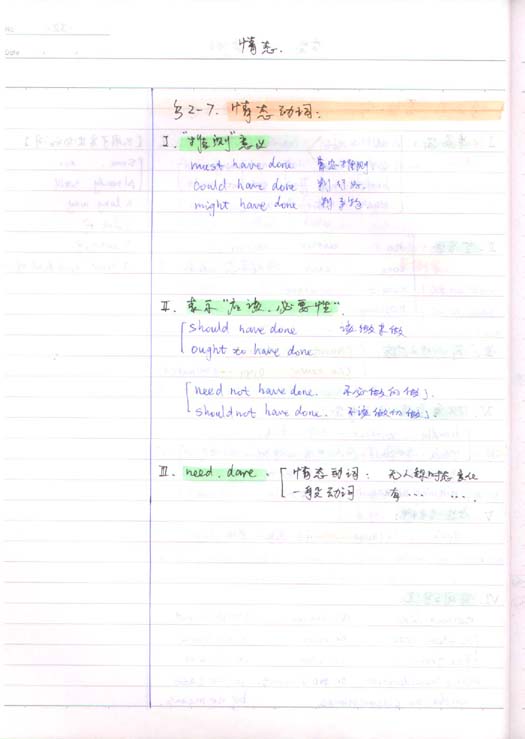 No
Date
情态.
§2-7. 情态动词:
I. "推测"意义
must have done 肯定推测
could have done
might have done
II. 表示"应该、必要性".
should have done 该做未做
ought to have done
need not have done. 不必做的做了.
should not have done. 不该做的做了.
III. need. dare. 情态动词: 无人称时态变化
一般动词 有… ….